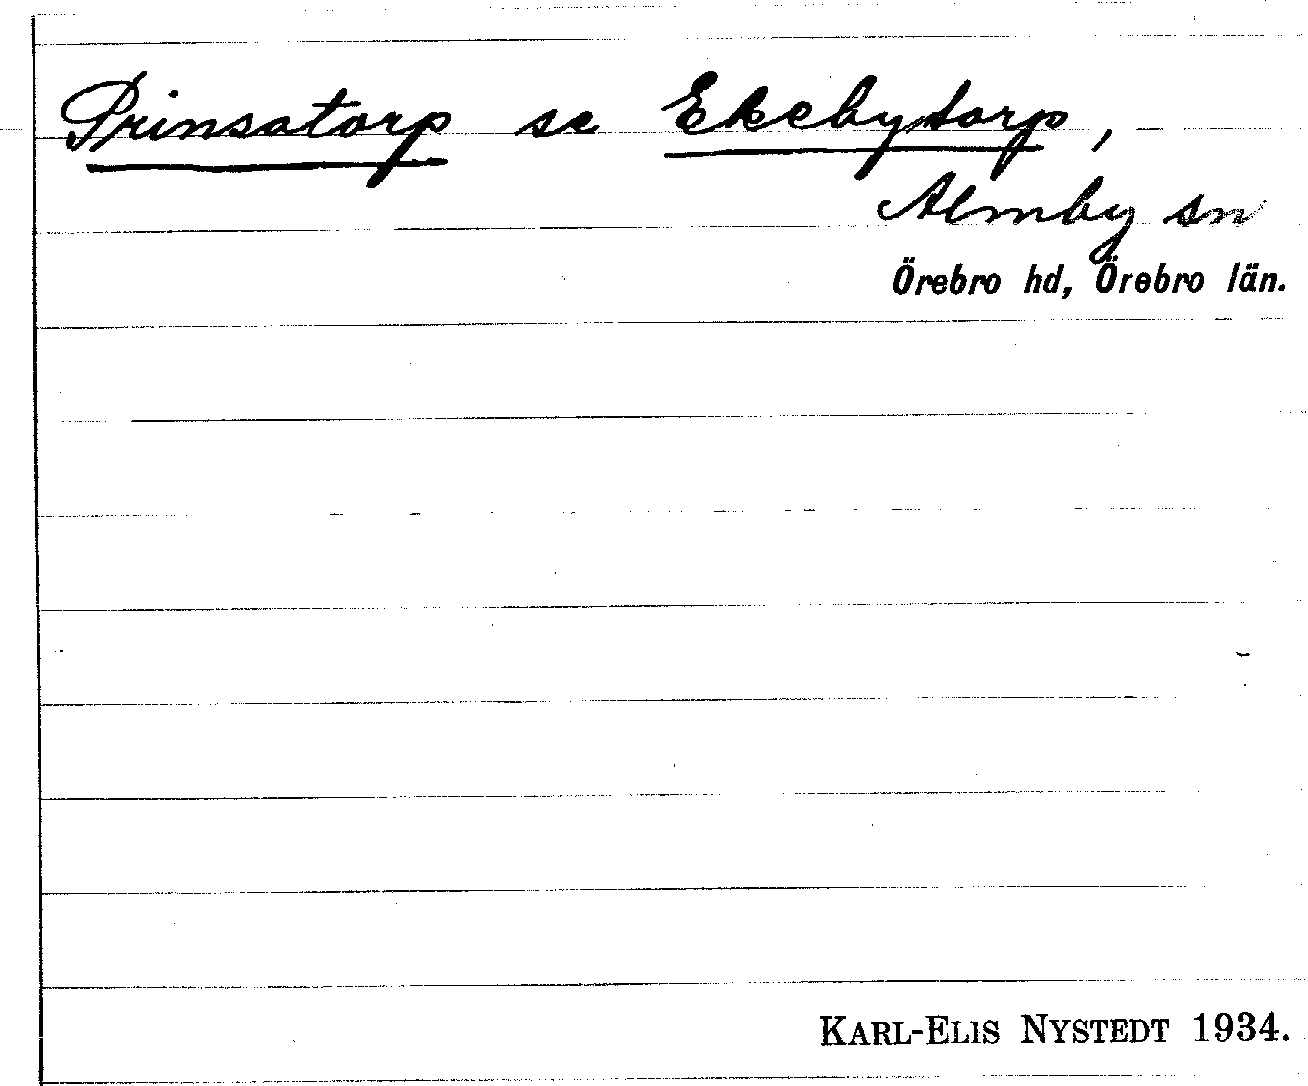 Prinsatorp se Ekebytorp,
Almby sn
Örebro hd, Örebro län.
KARL-ELIS NYSTEDT 1934.